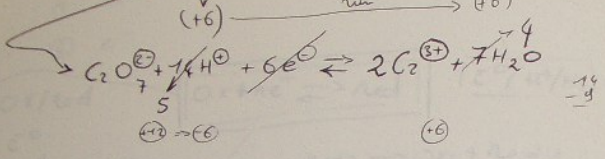 (+6)
4
C₂O₇²⁻ + 14H⁺ + 6e⁻ ⇌ 2C₂³⁺ + 7H₂O
5
14
-9
+12 ⇒ -6 +6